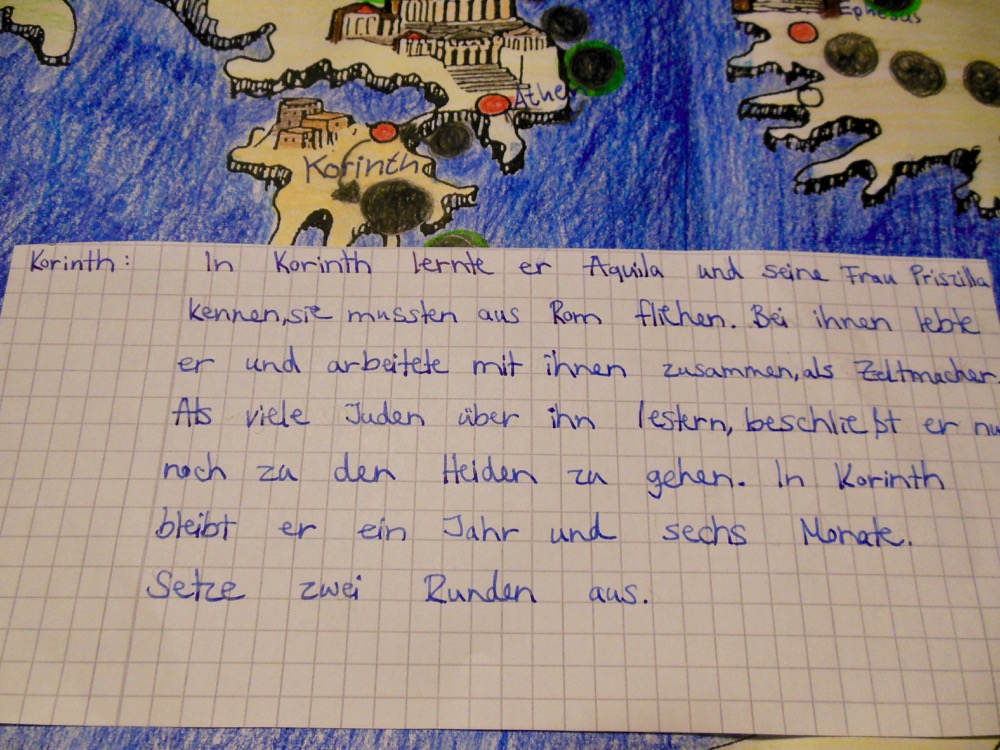 Ephesus
Athe
Korinth
Korinth: In Korinth lernte er Aquila und seine Frau Priszilla
kennen, sie mussten aus Rom fliehen. Bei ihnen lebte
er und arbeitete mit ihnen zusammen, als Zeltmacher.
Als viele Juden über ihn lestern, beschließt er nu
noch zu den Heiden zu gehen. In Korinth
bleibt er ein Jahr und sechs Monate.
Setze zwei Runden aus.